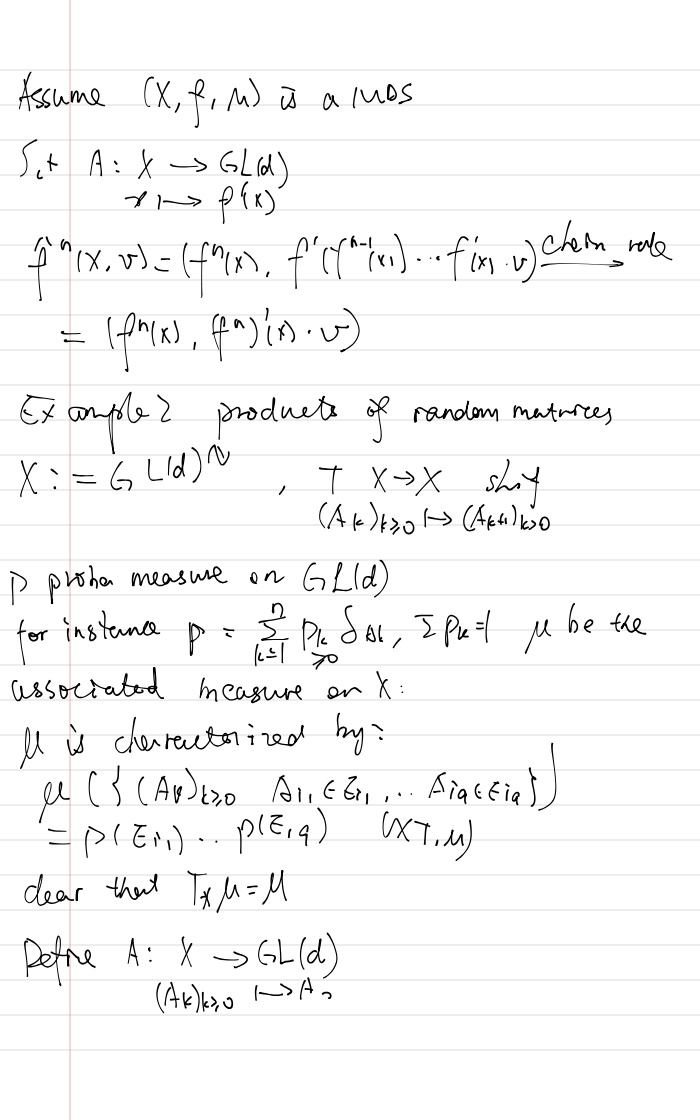 Assume (X, f, μ) is a MDS
Set A: X → GL(d)
x ↦ f'(x)
f̂ⁿ(x, v) = (fⁿ(x), f'(fⁿ⁻¹(x)) ⋯ f'(x) · v) chain rule →
= (fⁿ(x), (fⁿ)'(x) · v)
Example 2 products of random matrices
X := GL(d)^ℕ , T X → X shif
(A_k)_{k≥0} ↦ (A_{k+1})_{k≥0}
p proba measure on GL(d)
for instance p = Σ_{k=1}^n p_k δ_{A_k}, Σ p_k = 1 μ be the
≥0
associated measure on X:
μ is characterized by:
μ ({ (A_k)_{k≥0} A_{i_1} ∈ E_{i_1}, .. A_{i_q} ∈ E_{i_q} })
= p(E_{i_1}) .. p(E_{i_q}) (X T, μ)
clear that T_* μ = μ
Define A: X → GL(d)
(A_k)_{k≥0} ↦ A_0